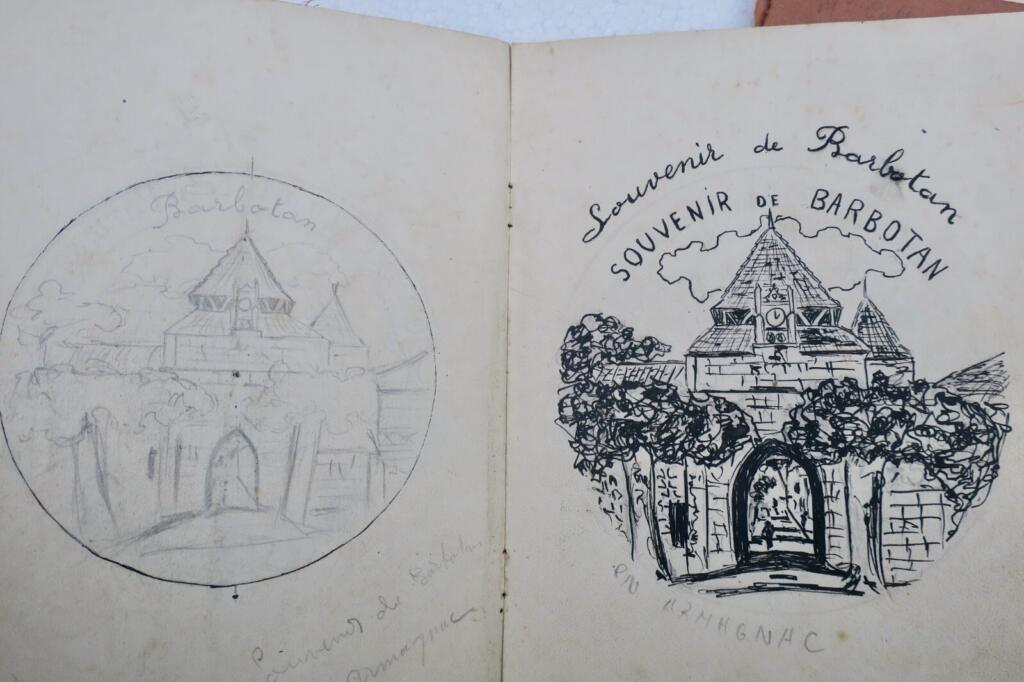 Barbotan
Souvenir de Barbotan
Armagnac
Souvenir de Barbotan
SOUVENIR DE BARBOTAN
EN ARMAGNAC